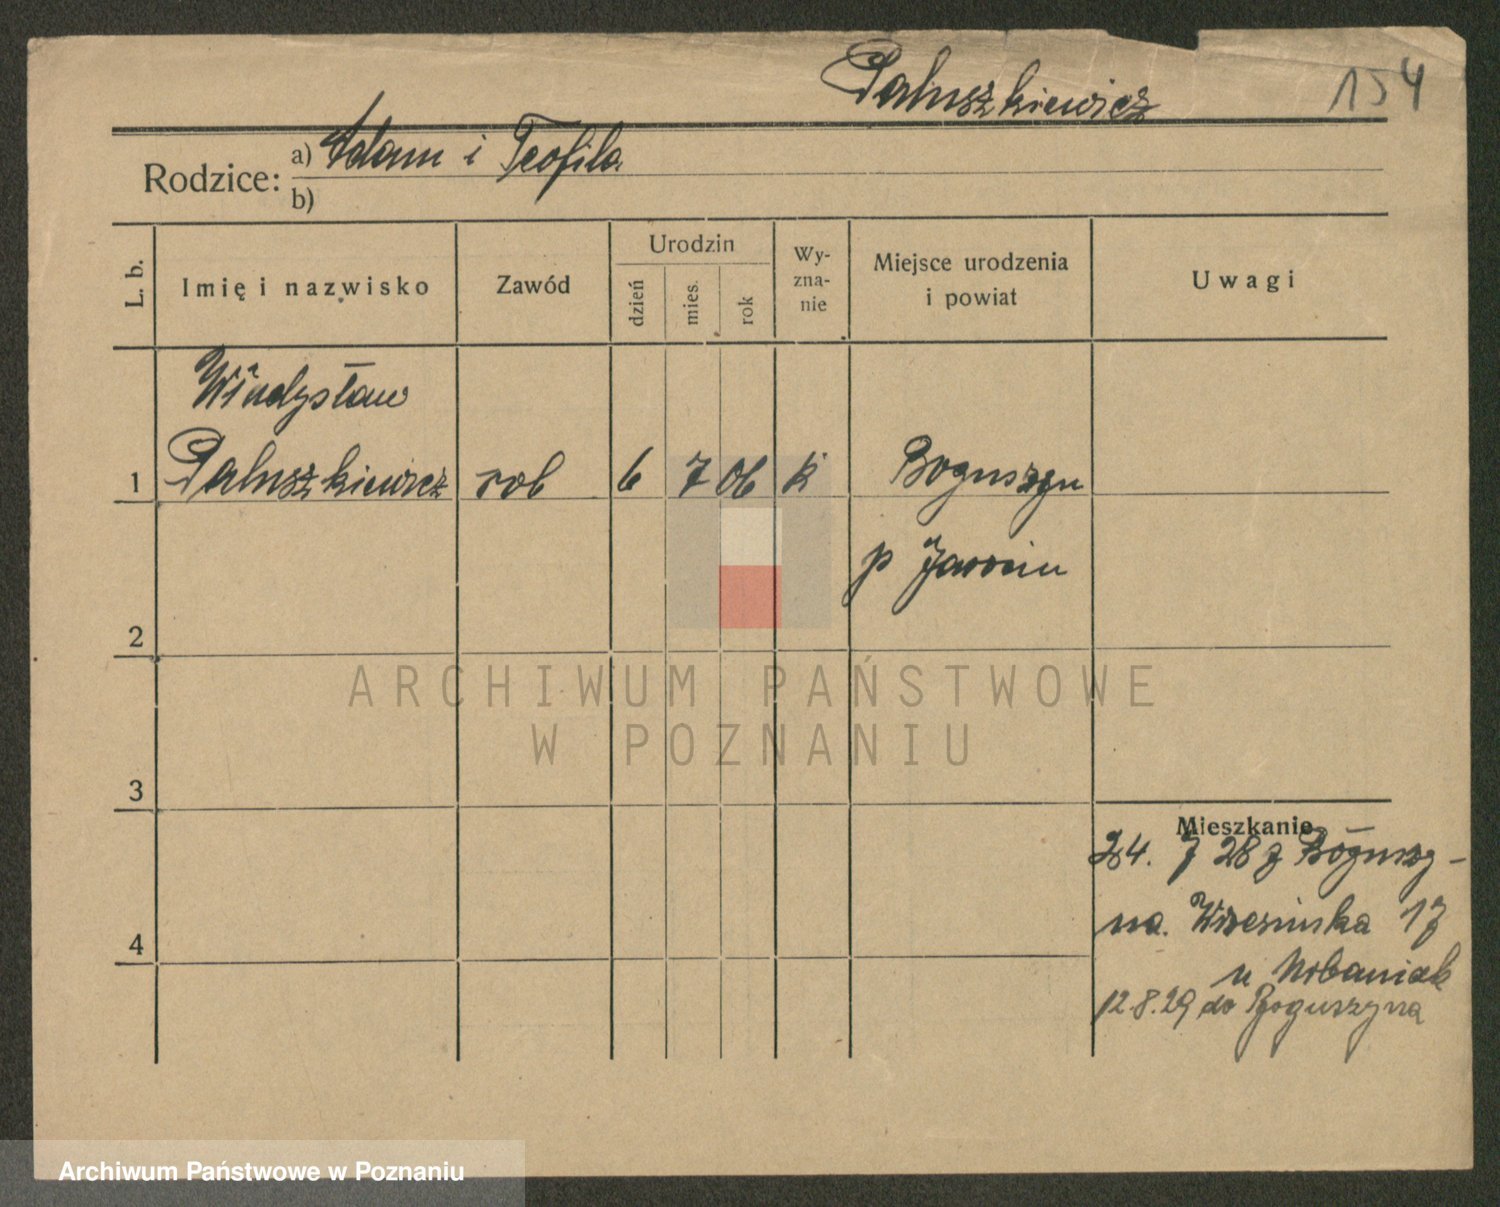 Paluszkiewicz 154
Rodzice: a) Adam i Teofila
b)
L. b. Imię i nazwisko Zawód Urodzin dzień mies. rok Wyznanie Miejsce urodzenia i powiat Uwagi
Władysław
1 Paluszkiewicz rob 6 7 06 k Boguszyn
p Jarocin
2
ARCHIWUM PAŃSTWOWE
W POZNANIU
3
Mieszkanie
24. 7 28 z Boguszy-
na. Wrzesińska 17
4
u Urbaniak
12.8.29 do Boguszyna
Archiwum Państwowe w Poznaniu